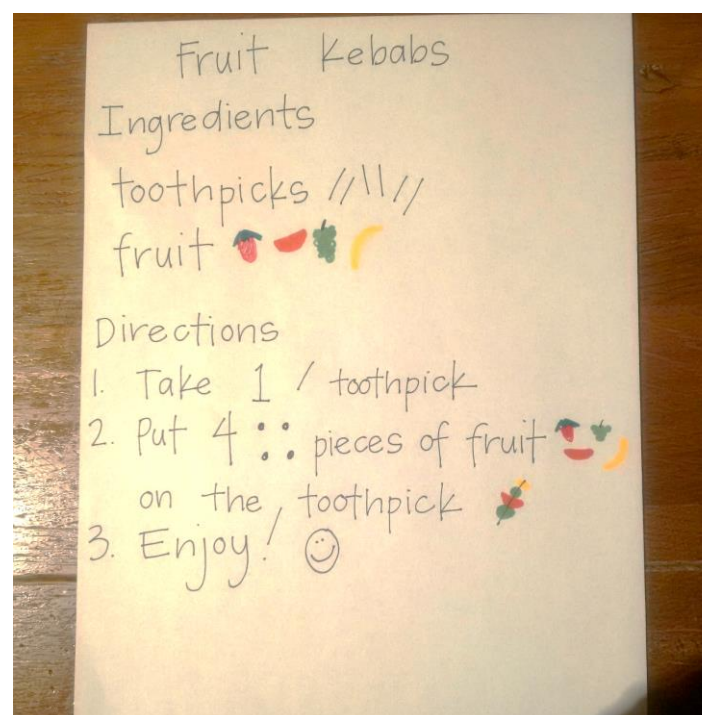 Fruit Kebabs
Ingredients
toothpicks
fruit
Directions
1. Take 1 toothpick
2. Put 4 pieces of fruit
on the toothpick
3. Enjoy!